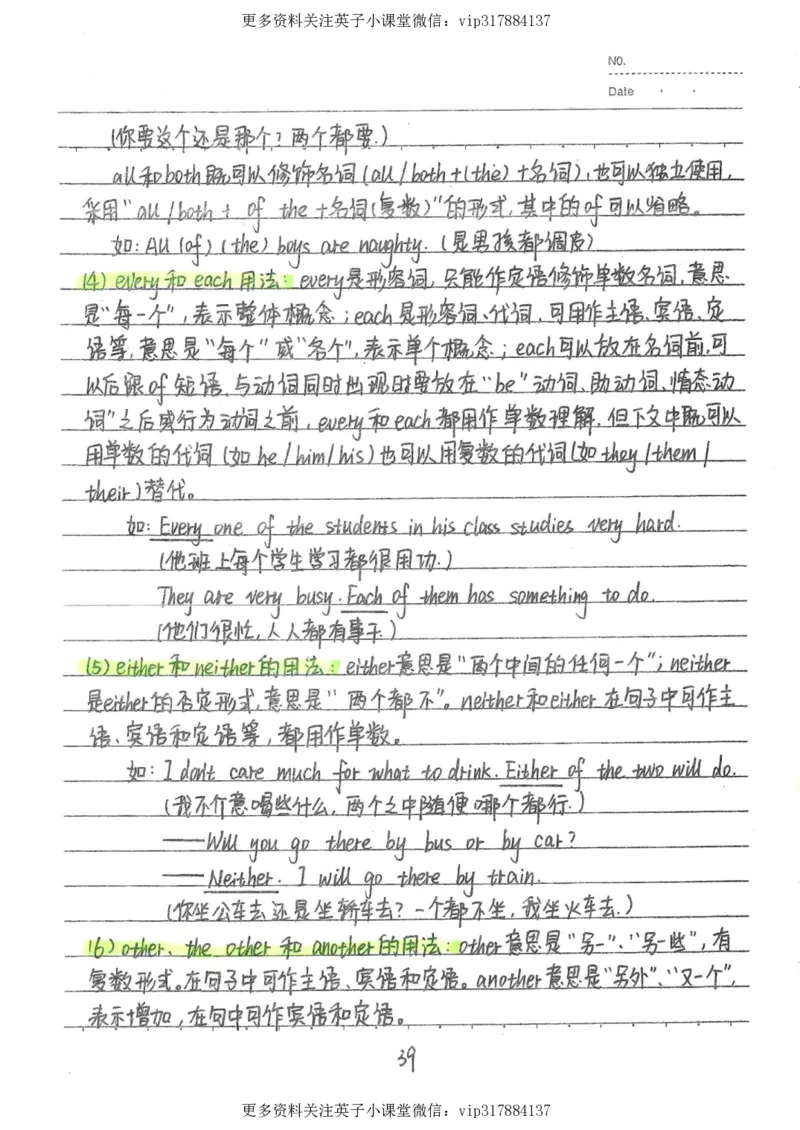 更多资料关注英子小课堂微信：vip317884137
NO.
Date
(你要这个还是那个？两个都要.)
all和both既可以修饰名词(all/both+(the)+名词),也可以独立使用,
采用“all/both + of the +名词(复数)”的形式,其中的of可以省略。
如: All (of) (the) boys are naughty. (是男孩都调皮)
(4) every和each用法: every是形容词,只能作定语修饰单数名词,意思
是“每一个”,表示整体概念; each是形容词、代词,可用作主语、宾语、定
语等,意思是“每个”或“各个”,表示单个概念; each可以放在名词前,可
以后跟of短语,与动词同时出现时要放在“be”动词、助动词、情态动
词”之后或行为动词之前, every和each都用作单数理解,但下文中既可以
用单数的代词(如he/him/his)也可以用复数的代词(如they/them/
their)替代。
如: Every one of the students in his class studies very hard.
(他班上每个学生学习都很用功.)
They are very busy. Each of them has something to do.
(他们很忙,人人都有事干)
(5) either和neither的用法: either意思是“两个中间的任何一个”; neither
是either的否定形式,意思是“两个都不”。neither和either在句子中可作主
语、宾语和定语等,都用作单数。
如: I don't care much for what to drink. Either of the two will do.
(我不介意喝些什么,两个之中随便哪个都行.)
——Will you go there by bus or by car?
——Neither. I will go there by train.
(你坐公车去还是坐轿车去？一个都不坐,我坐火车去.)
(6) other、the other和another的用法: other意思是“另一”、“另一些”,有
复数形式。在句子中可作主语、宾语和定语。another意思是“另外”、“又一个”,
表示增加,在句中可作宾语和定语。
39
更多资料关注英子小课堂微信：vip317884137